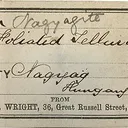 Nagyagite
Foliated Tellur
Nagyag
Hungary
FROM
WRIGHT, 36, Great Russell Street,